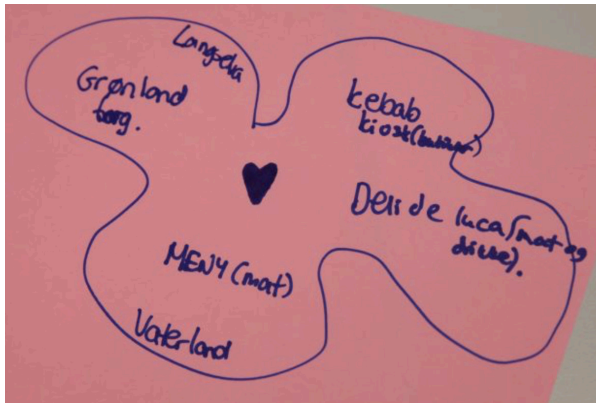 Langsetra
Grønland
torg.
kebab
kiost(butikker)
Deli de luca(mat og
drikke).
MENY (mat)
Vaterland